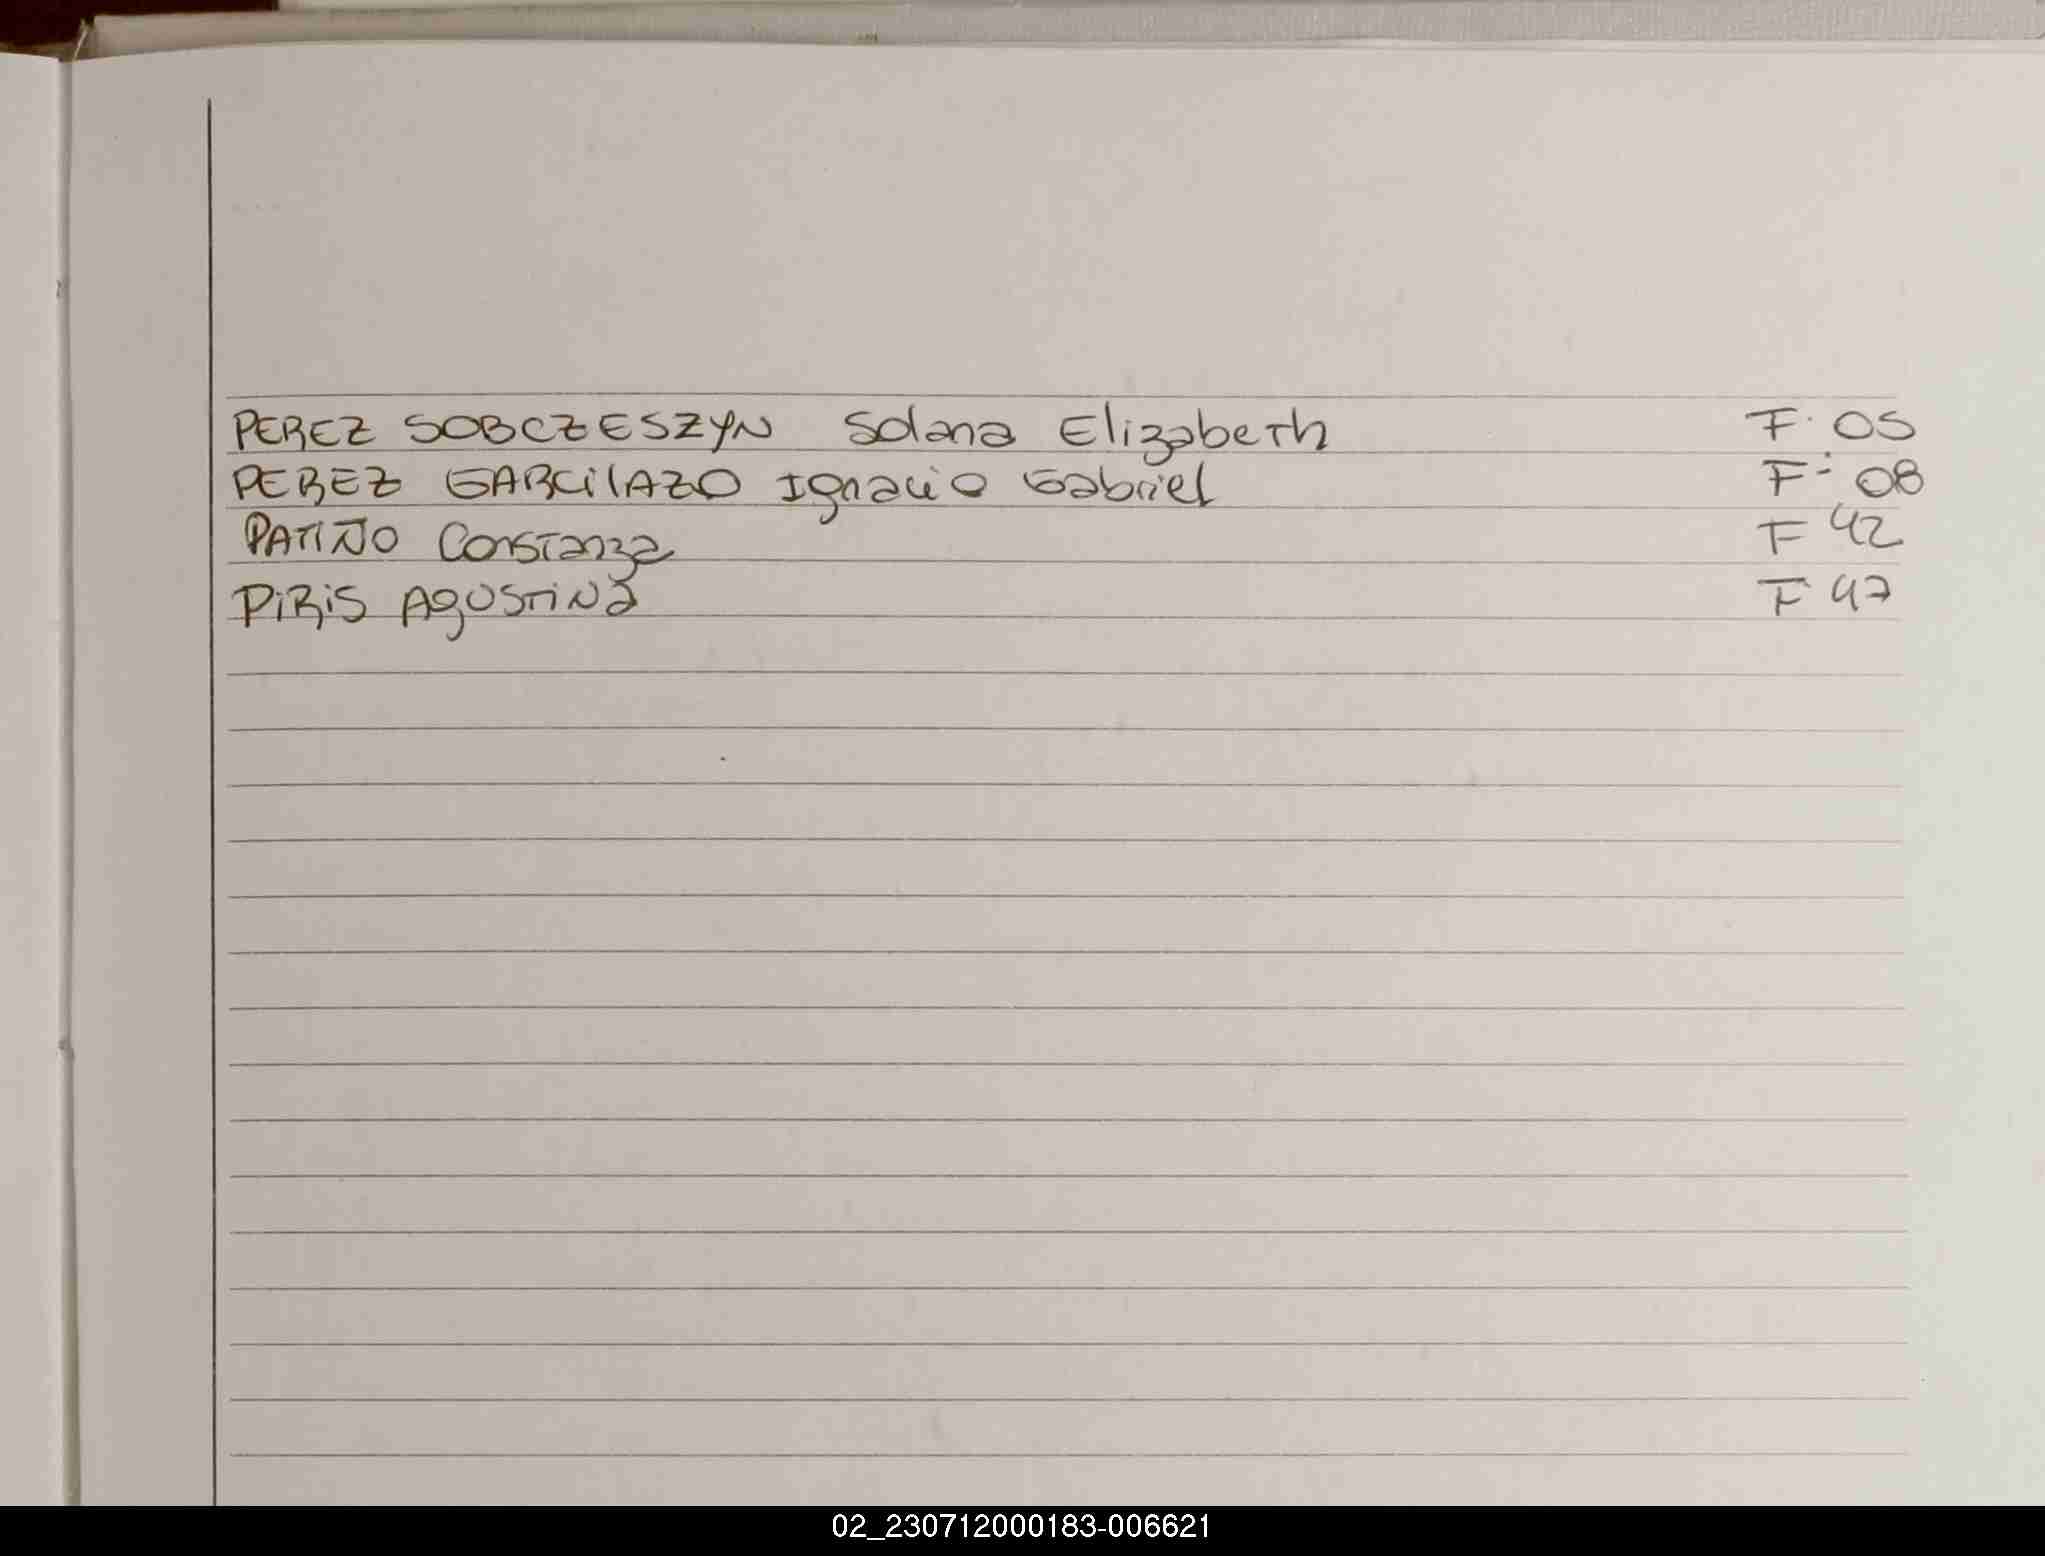 PEREZ SOBCZESZYN Solana Elizabeth F. 05
PEREZ GARCilAZO Ignacio Gabriel F- 08
PATIÑO Constanza F 42
PiRiS AgUSTiNa F 47
02_230712000183-006621